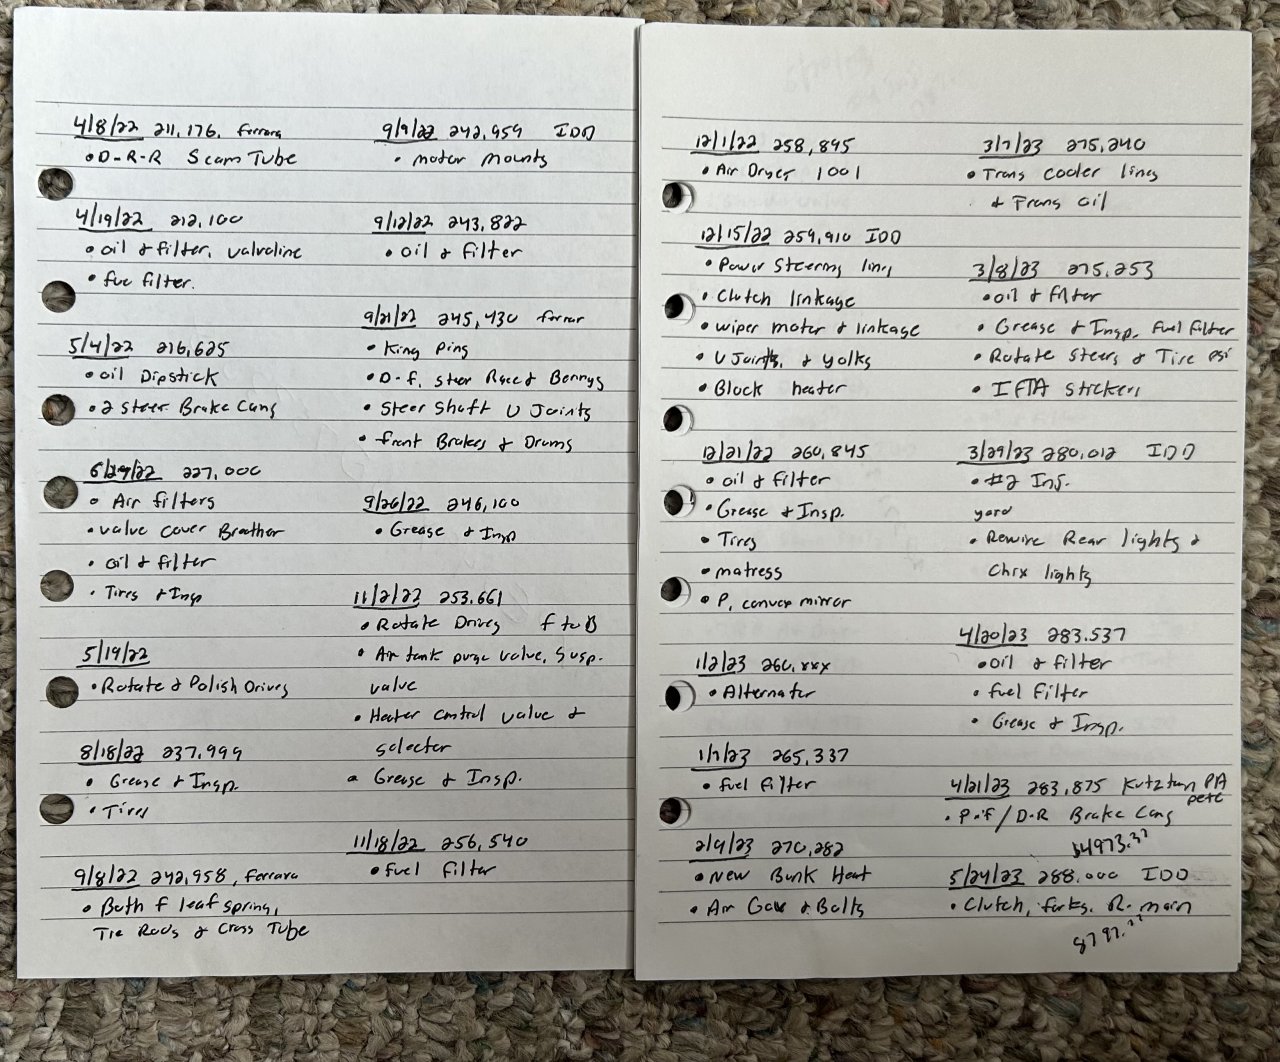 4/8/22 211,176, Ferrara
• D-R-R Scam Tube
4/19/22 212,100
• oil & filter, valvoline
• fue filter.
5/4/22 216,625
• oil Dipstick
• 2 steer Brake Cans
6/29/22 227,000
• Air filters
• valve cover Breather
• oil & filter
• Tires & Insp
5/19/22
• Rotate & Polish Drives
8/18/22 237,999
• Grease & Insp.
• Tires
9/8/22 242,958, Ferrara
• Both f leaf spring,
Tie Rods & Cross Tube
9/9/22 242,959 IDD
• motor mounts
9/12/22 243,822
• oil & filter
9/21/22 245,430 ferrar
• King Pins
• D-f, steer Race &
• Steer Shaft U Joints
• front Brakes & Drums
9/26/22 246,100
• Grease & Insp
11/2/22 253.661
• Rotate Drives f to B
• Air tank purge valve, Susp.
valve
• Heater control valve &
selector
• Grease & Insp.
11/18/22 256,540
• fuel filter
12/1/22 258,895
• Air Dryer 1001
12/15/22 259,910 IDD
• Power Steering lines
• Clutch linkage
• wiper motor & linkage
• U Joints, & yolks
• Block heater
12/21/22 260,845
• oil & filter
• Grease & Insp.
• Tires
• matress
• P, convex mirror
1/2/23 260,xxx
• Alternator
1/7/23 265,337
• fuel filter
2/9/23 270,282
• New Bunk Heat
• Air Gov & Belts
3/7/23 275,240
• Trans cooler lines
& Trans oil
3/8/23 275,253
• oil & filter
• Grease & Insp. Fuel filter
• Rotate Steers & Tire psi
• IFTA stickers
3/29/23 280,012 IDD
• #2 Inj.
yard
• Rewire Rear lights &
Chrx lights
4/20/23 283.537
• oil & filter
• fuel filter
• Grease & Insp.
4/21/23 283,875 Kutztown PA
pete
• P-f/D-R Brake Cans
$4973.37
5/24/23 288.000 IDD
• Clutch, forks. R. main
8797.77